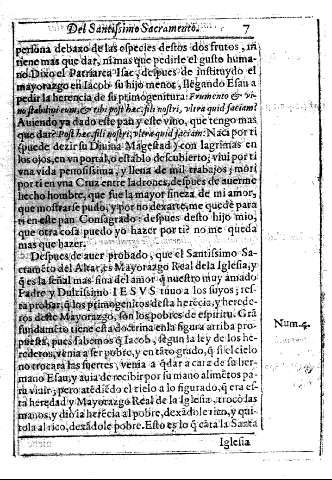 Del Santissimo Sacramento. 7
persona debaxo de las especies destos dos frutos, ni
tiene mas que dar, ni mas que pedirle el gusto huma-
no. Dixo el Patriarca Isac, despues de instituydo el
mayorazgo en Iacob su hijo menor, llegando Esau a
pedir la herencia de su primogenitura: Frumento & vi-
no stabiliui eum, & tibi post hæc, fili mi, vltra quid faciam?
Auiendo ya dado este pan y este vino, que tengo mas
que dar? Post hæc, fili nostri, vltra quid faciam: Naci por ti
(puede dezir su Diuina Magestad y con lagrimas en
los ojos, en vn portal, o establo descubierto; viui por ti
vna vida penosissima, y llena de mil trabajos; mori
por ti en vna Cruz entre ladrones, despues de auerme
hecho hombre, que fue la mayor fineza de mi amor,
que mostrarse pudo, y por no dexarte, me quedè para
ti en este pan Consagrado: despues desto hijo mio,
que otra cosa puedo yo hazer por ti? no me queda
mas que hazer.
Despues de auer probado, que el Santissimo Sa-
cramẽto del Altar, es Mayorazgo Real de la Iglesia, y
q̃ es la señal mas fina del amor q̃ nuestro muy amado
Padre y Dulcissimo IESVS tuuo a los suyos; res-
ta probar, q̃ los primogenitos desta herẽcia, y herede-
ros deste Mayorazgo, son los pobres de espiritu. Grã
fundamẽto tiene esta doctrina en la figura arriba pro-
puesta, pues sabemos q̃ Iacob, segun la ley de los he-
rederos, venia a ser pobre, y en tãto grado, q̃ si el cielo
no trocara las suertes, venia a q̃dar a cara de su her-
mano Esau, y auia de recibir por su mano alimẽtos pa-
ra viuir; pero atẽdiẽdo el cielo a lo figurado, q̃ era es-
ta heredad y Mayorazgo Real de la Iglesia, trocò las
manos, y diò la herẽcia al pobre, dexãdole rico, y qui-
tola al rico, dexãdole pobre. Esto es lo q̃ cãta la Santa
Iglesia
Num. 4.